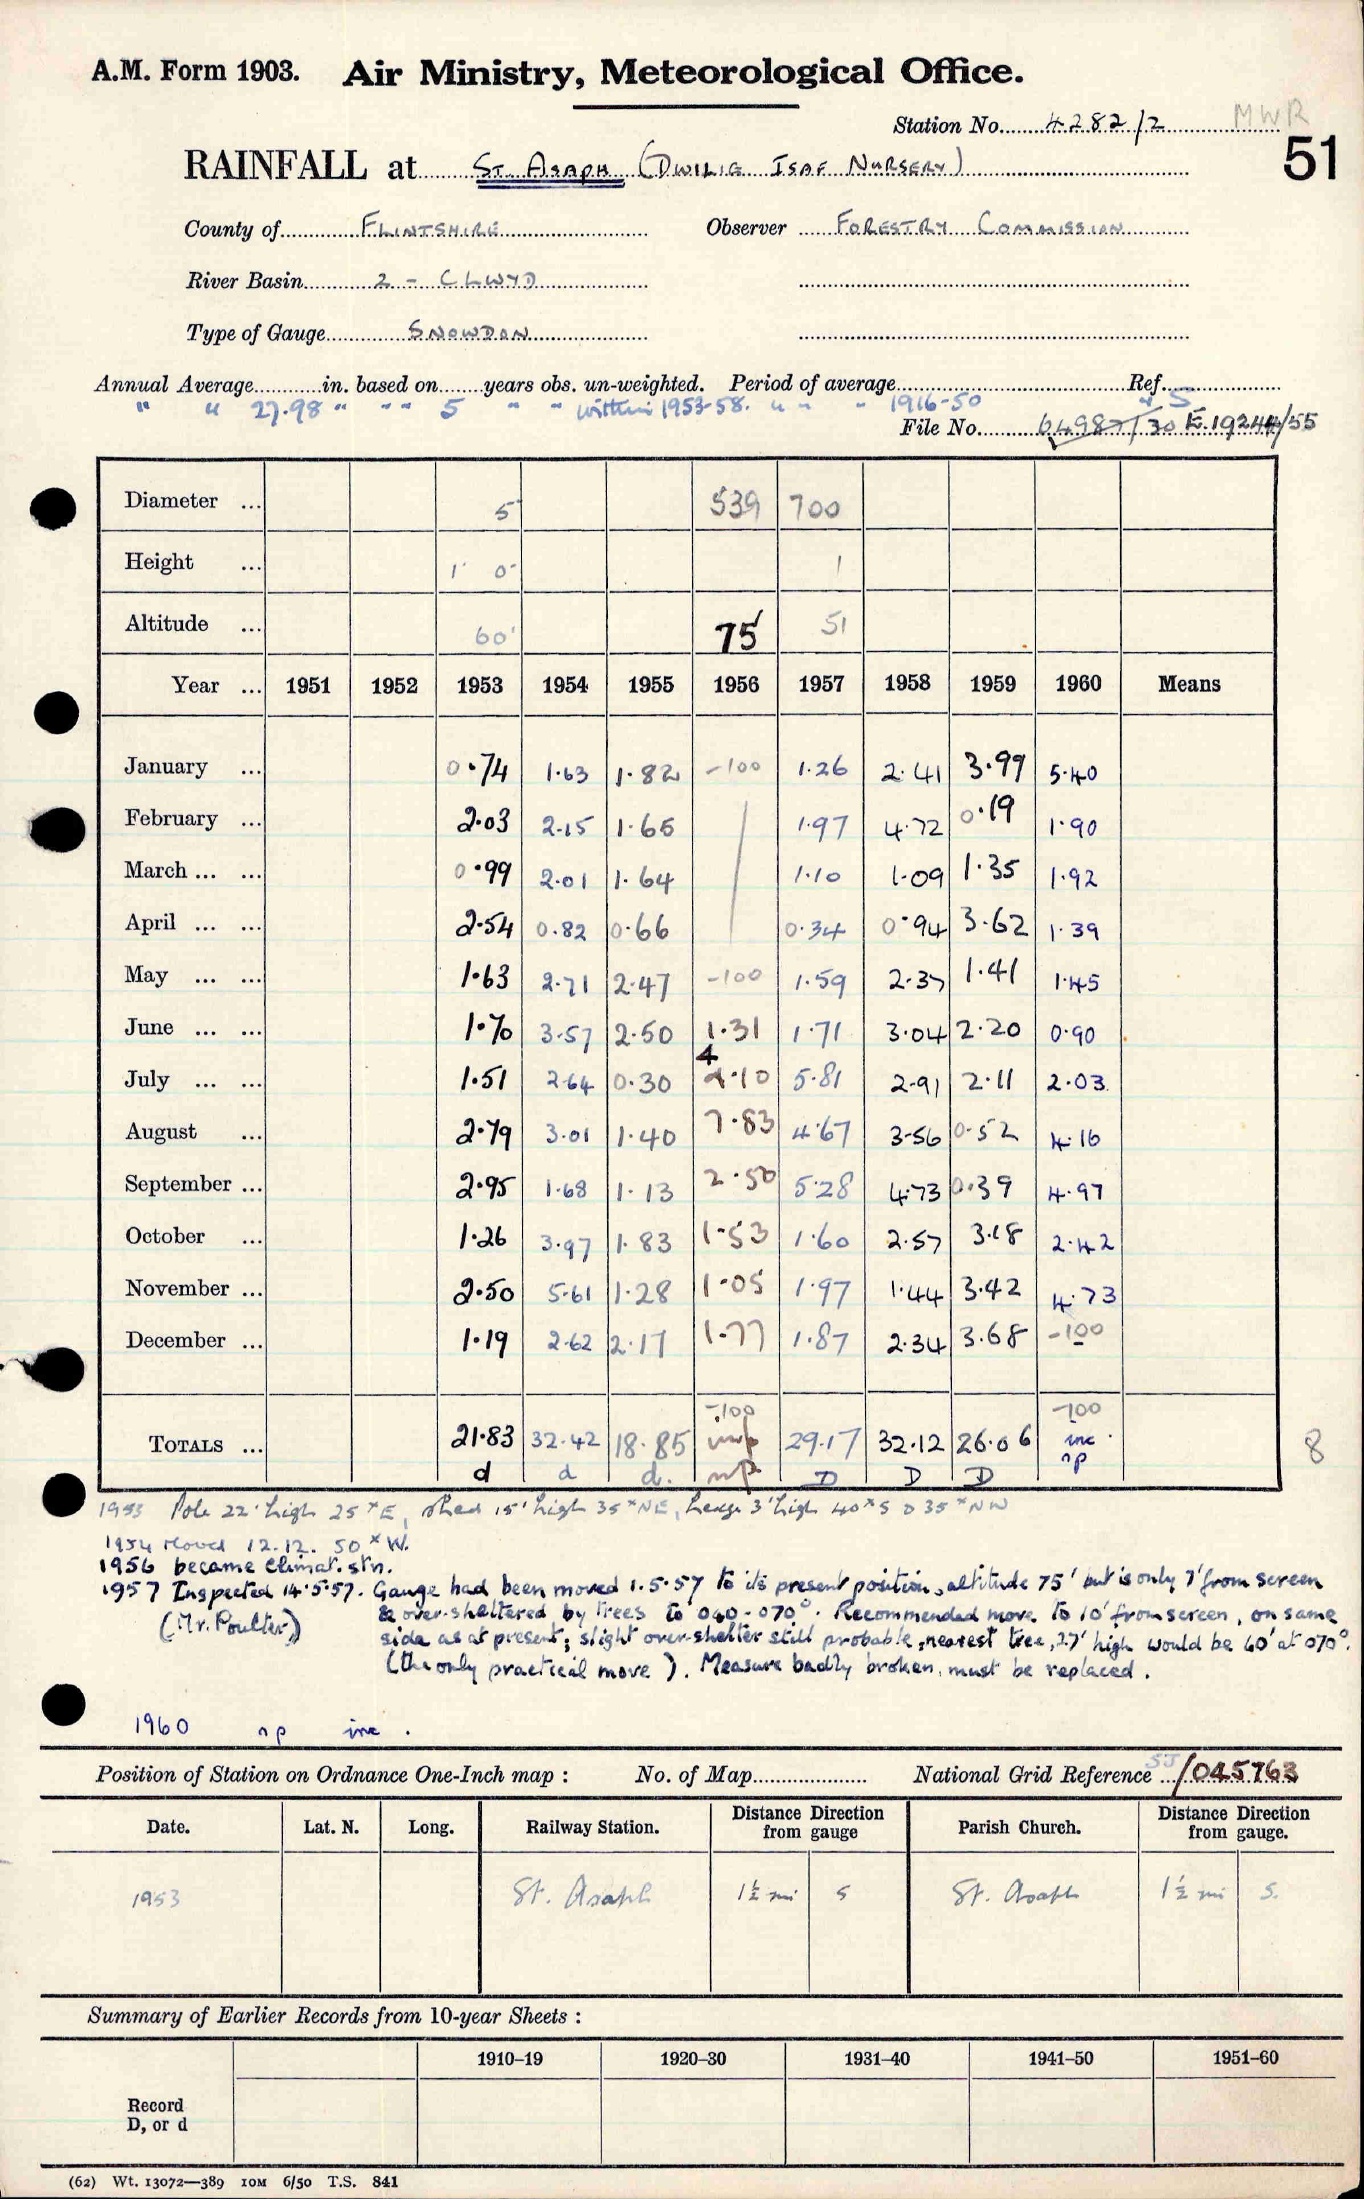 A.M. Form 1903. Air Ministry, Meteorological Office.
Station No. 4282/2 MWR
51
RAINFALL at St. Asaph (Dwilig Isaf Nursery)
County of Flintshire Observer Forestry Commission
River Basin 2 - Clwyd
Type of Gauge Snowdon
Annual Average in. based on years obs. un-weighted. Period of average Ref.
" " 27.98 " " " 5 " " within 1953-58. " " " 1916-50 " 5
File No. 64987/30 E.19244/55
Diameter ... 5 539 700
Height ... 1' 0" 1
Altitude ... 60' 75' 51
Year ... 1951 1952 1953 1954 1955 1956 1957 1958 1959 1960 Means
January ... 0.74 1.63 1.82 -100 1.26 2.41 3.99 5.40
February ... 2.03 2.15 1.65 1.97 4.72 0.19 1.90
March ... ... 0.99 2.01 1.64 1.10 1.09 1.35 1.92
April ... ... 2.54 0.82 0.66 0.34 0.94 3.62 1.39
May ... ... 1.63 2.71 2.47 -100 1.59 2.37 1.41 1.45
June ... ... 1.70 3.57 2.50 1.31 1.71 3.04 2.20 0.90
July ... ... 1.51 2.64 0.30 4.10 5.81 2.91 2.11 2.03
August ... 2.79 3.01 1.40 7.83 4.67 3.56 0.52 4.16
September ... 2.95 1.68 1.13 2.50 5.28 4.73 0.39 4.97
October ... 1.26 3.97 1.83 1.53 1.60 2.57 3.18 2.42
November ... 2.50 5.61 1.28 1.05 1.97 1.44 3.42 4.73
December ... 1.19 2.62 2.17 1.77 1.87 2.34 3.68 -100
-100 -100
Totals ... 21.83 32.42 18.85 inc 29.17 32.12 26.06 inc. 8
d d d. np D D D np
1953 Pole 22' high 25ˣE, shed 15' high 35ˣNE, hedge 3' high 40ˣS D 35ˣNW
1954 Moved 12.12. 50ˣW.
1956 became Climat. stn.
1957 Inspected 14.5.57. Gauge had been moved 1.5.57 to its present position, altitude 75' but is only 7' from screen
(Mr. Poulter) & over-sheltered by trees to 040-070°. Recommended move to 10' from screen, on same
side as at present; slight over-shelter still probable, nearest tree, 27' high would be 60' at 070°.
(the only practical move). Measure badly broken, must be replaced.
1960 np inc.
Position of Station on Ordnance One-Inch map : No. of Map National Grid Reference SJ/045763
Date. Lat. N. Long. Railway Station. Distance Direction from gauge Parish Church. Distance Direction from gauge.
1953 St. Asaph 1½ mi S St. Asaph 1½ mi S.
Summary of Earlier Records from 10-year Sheets :
1910–19 1920–30 1931–40 1941–50 1951–60
Record
D, or d
(62) Wt. 13072—389 10M 6/50 T.S. 841